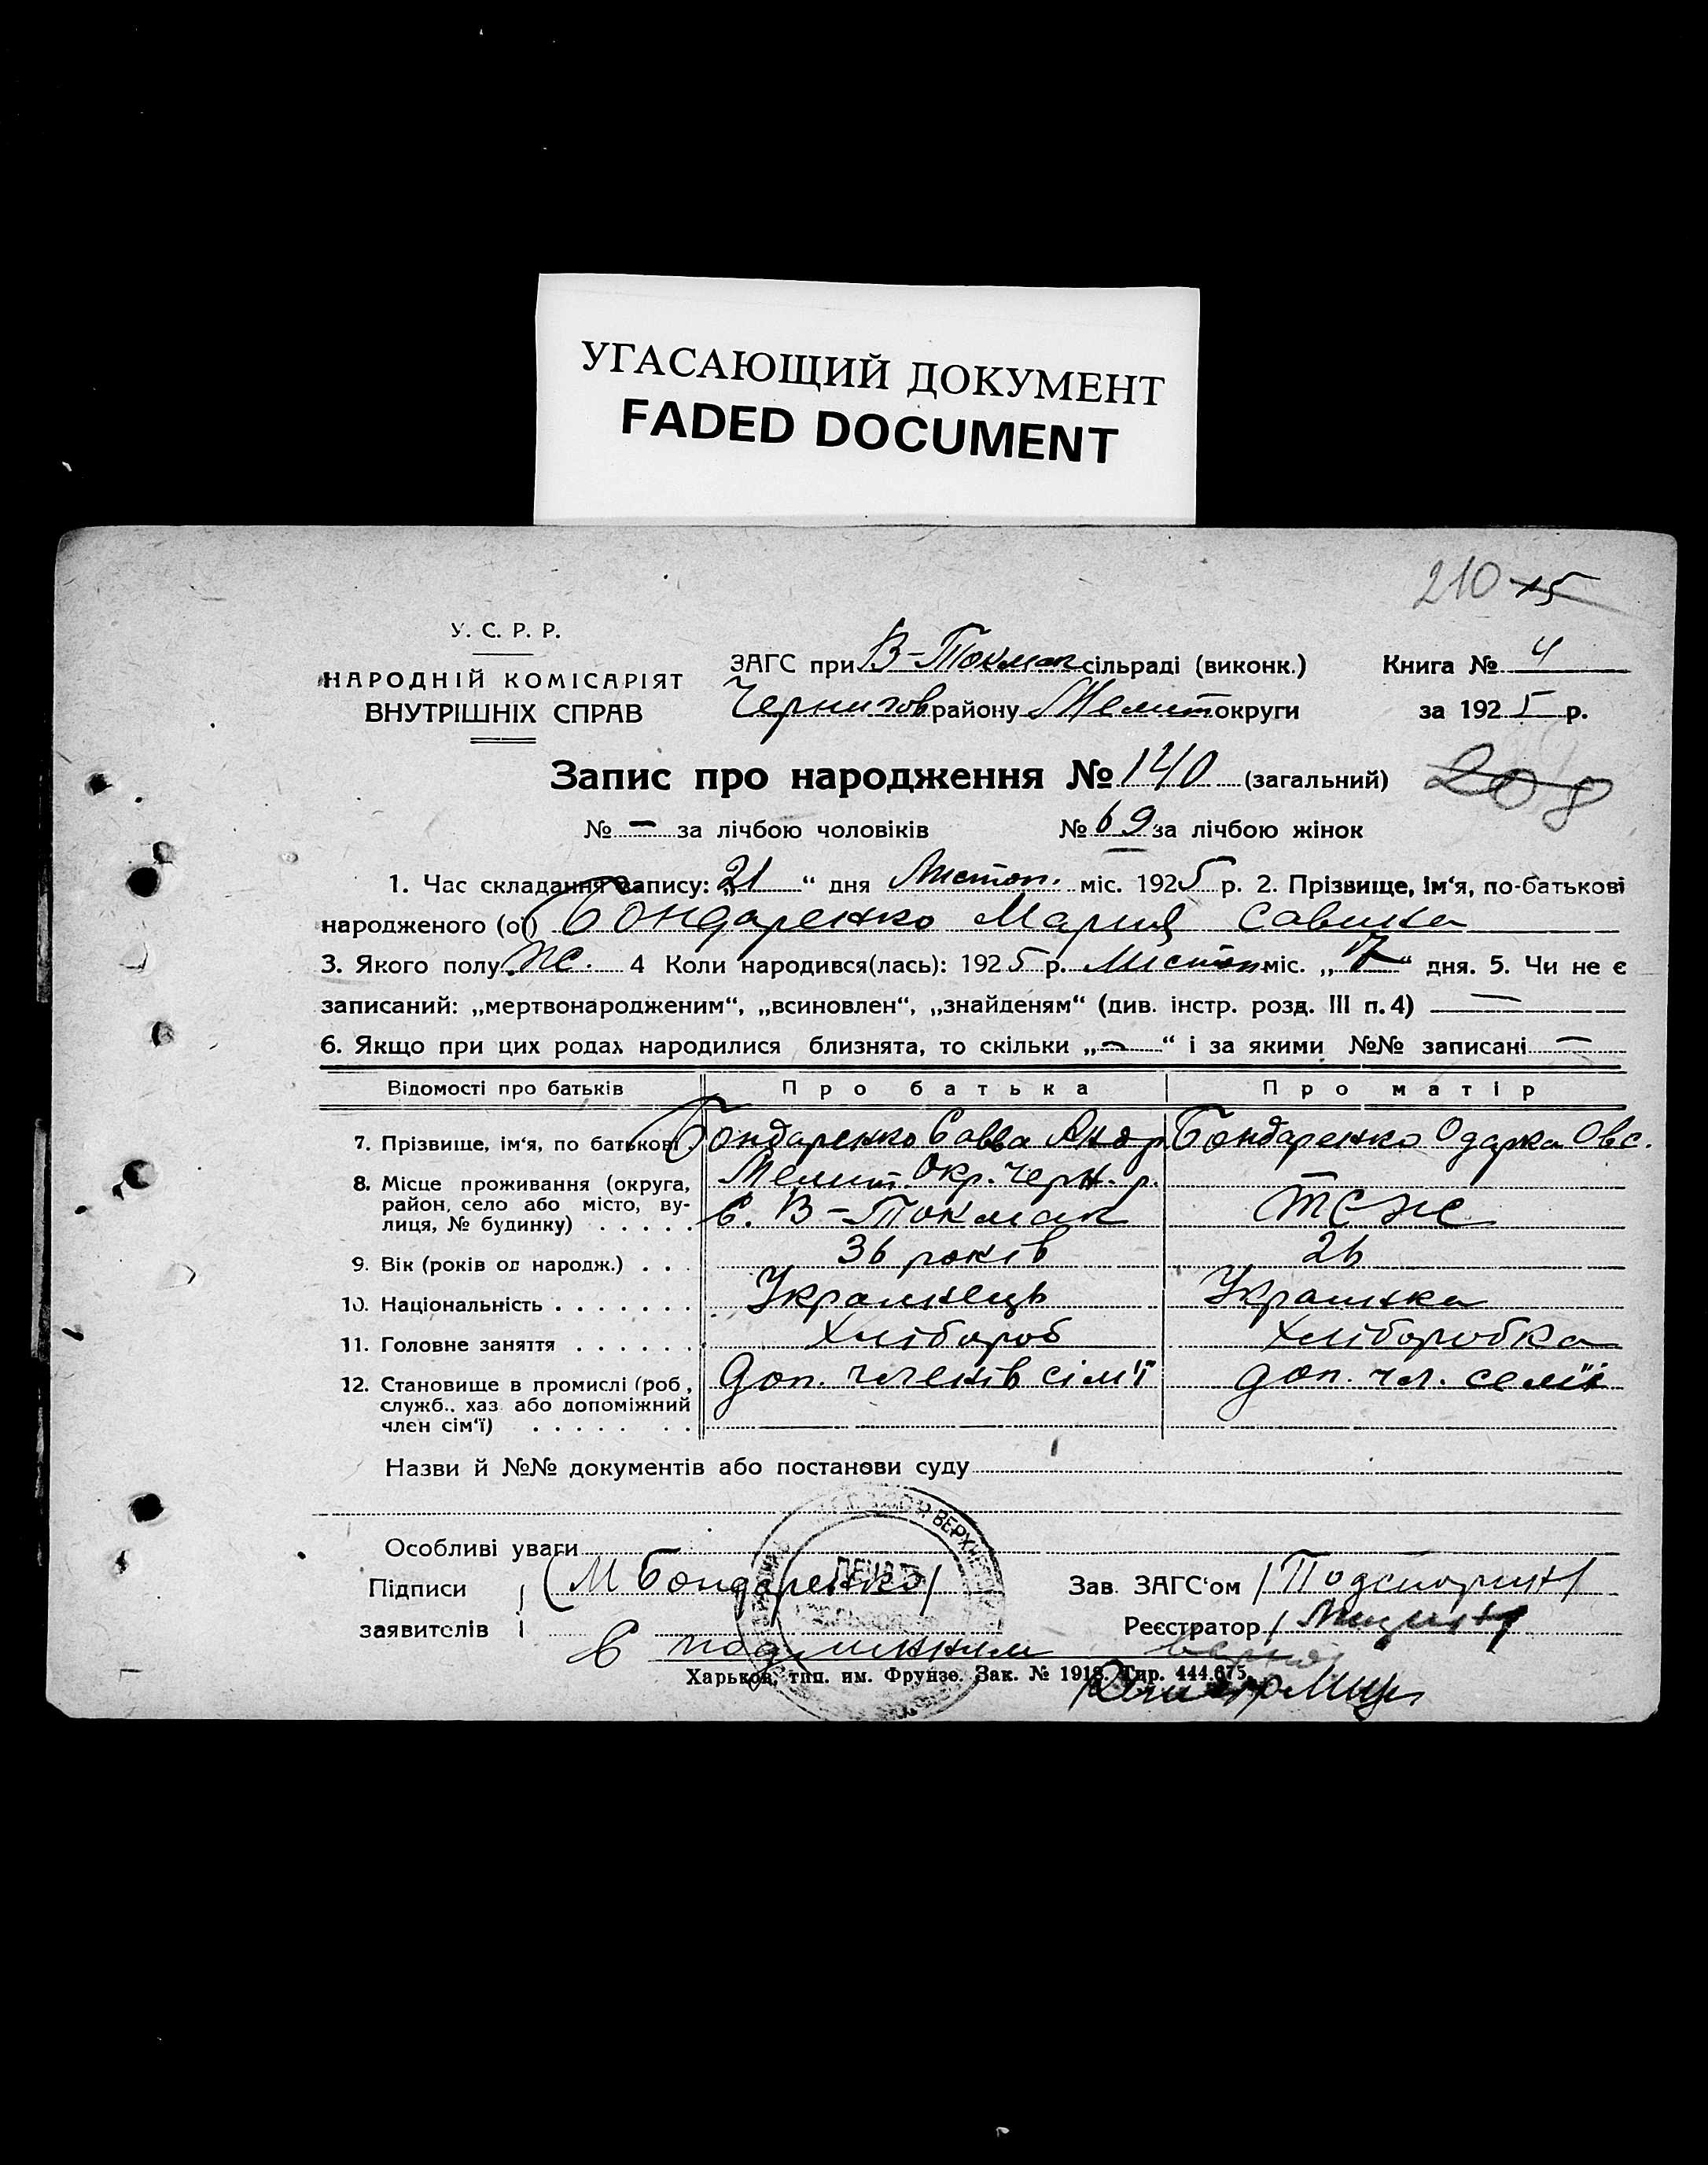 УГАСАЮЩИЙ ДОКУМЕНТ
FADED DOCUMENT
210 15
У. С. Р. Р.
НАРОДНІЙ КОМІСАРІЯТ
ВНУТРІШНІХ СПРАВ
ЗАГС при В-Токмак сільраді (виконк.)
Чернигов району Мелит округи
Книга № 4
за 1925 р.
Запис про народження № 140 (загальний)
208
№ — за лічбою чоловіків № 69 за лічбою жінок
1. Час складання запису: „21“ дня Листоп. міс. 1925 р. 2. Прізвище, ім‘я, по-батькові
народженого (ої) Бондаренко Мария Савина
3. Якого полу ж. 4 Коли народився(лась): 1925 р. Листоп міс. „17“ дня. 5. Чи не є
записаний: „мертвонародженим“, „всиновлен“, „знайденям“ (див. інстр. розд. III п. 4) —
6. Якщо при цих родах народилися близнята, то скільки „—“ і за якими №№ записані —
Відомості про батьків Про батька Про матір
7. Прізвище, ім‘я, по батькові Бондаренко Савва Андр Бондаренко Одарка Овс.
8. Місце проживання (округа, район, село або місто, вулиця, № будинку) Мелит. Окр. Черн. р.
с. В-Токмак тсж
9. Вік (років од народж.) 36 років 26
10. Національність Украинець Украинка
11. Головне заняття Хлібороб Хліборобка
12. Становище в промислі (роб., служб., хаз або допоміжний член сім‘ї) Доп. членів сім'ї доп. чл. семїі
Назви й №№ документів або постанови суду
Особливі уваги
Підписи
заявителів
(М Бондаренко)
Зав. ЗАГС‘ом
Реєстратор
С подлинним верно
Харьков, тип. им. Фрунзе. Зак. № 1918. Тир. 444.675.